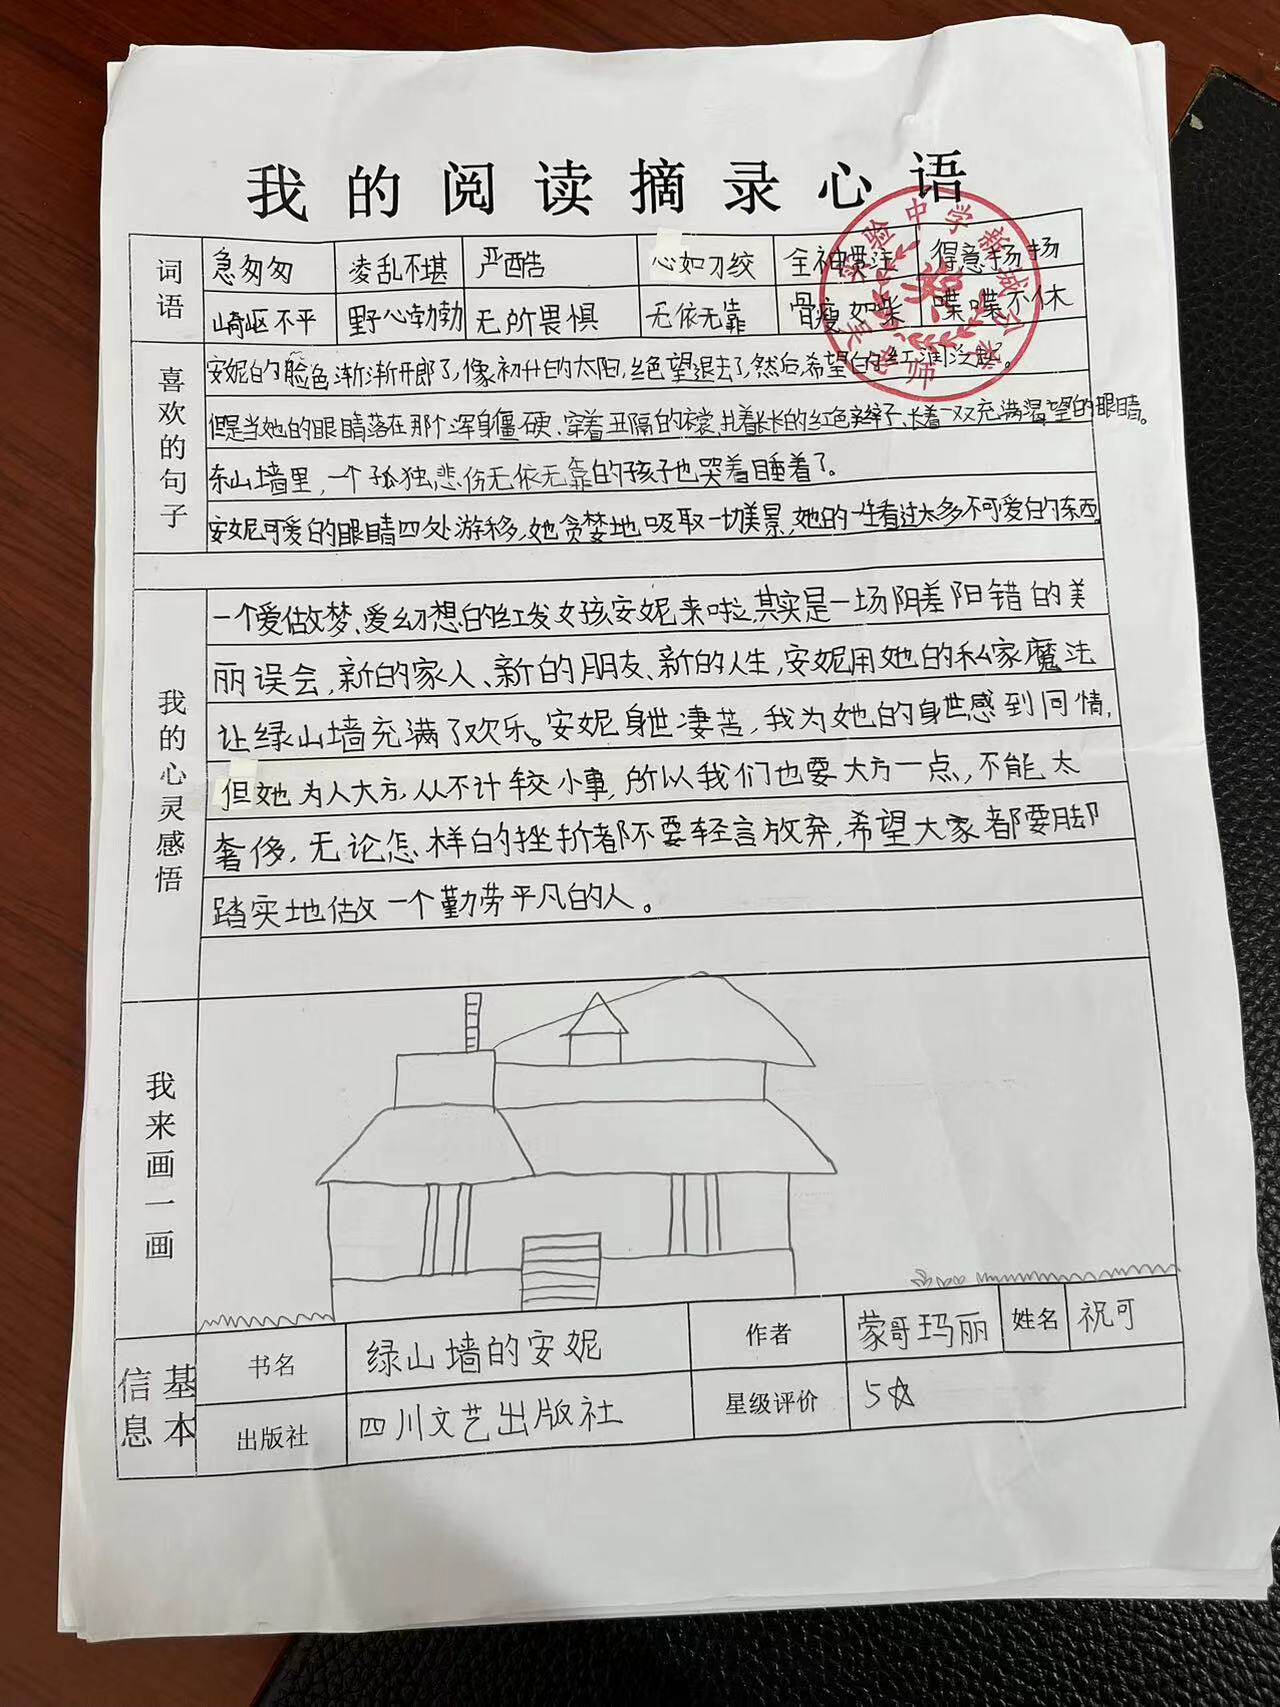 我的阅读摘录心语
词语
急匆匆 凌乱不堪 严酷 心如刀绞 全神贯注 得意扬扬
崎岖不平 野心勃勃 无所畏惧 无依无靠 骨瘦如柴 喋喋不休
喜欢的句子
安妮的脸色渐渐开郎了,像初升的太阳,绝望退去了,然后,希望的红润泛起。
但是当她的眼睛落在那个浑身僵硬、穿着丑隔的衣裳、扎着长长的红色辫子、长着一双充满渴望的眼睛。
东山墙里,一个孤独,悲伤无依无靠的孩子也哭着睡着了。
安妮可爱的眼睛四处游移,她贪婪地吸取一切美景,她的一生看过太多不可爱的东西。
我的心灵感悟
一个爱做梦、爱幻想的红发女孩安妮来啦,其实是一场阴差阳错的美
丽误会,新的家人、新的朋友、新的人生,安妮用她的私家魔法
让绿山墙充满了欢乐。安妮身世凄苦,我为她的身世感到同情,
但她为人大方,从不计较小事,所以我们也要大方一点,不能太
奢侈,无论怎样的挫折都不要轻言放弃,希望大家都要脚
踏实地做一个勤劳平凡的人。
我来画一画
基本信息
书名 绿山墙的安妮 作者 蒙哥玛丽 姓名 祝可
出版社 四川文艺出版社 星级评价 5☆